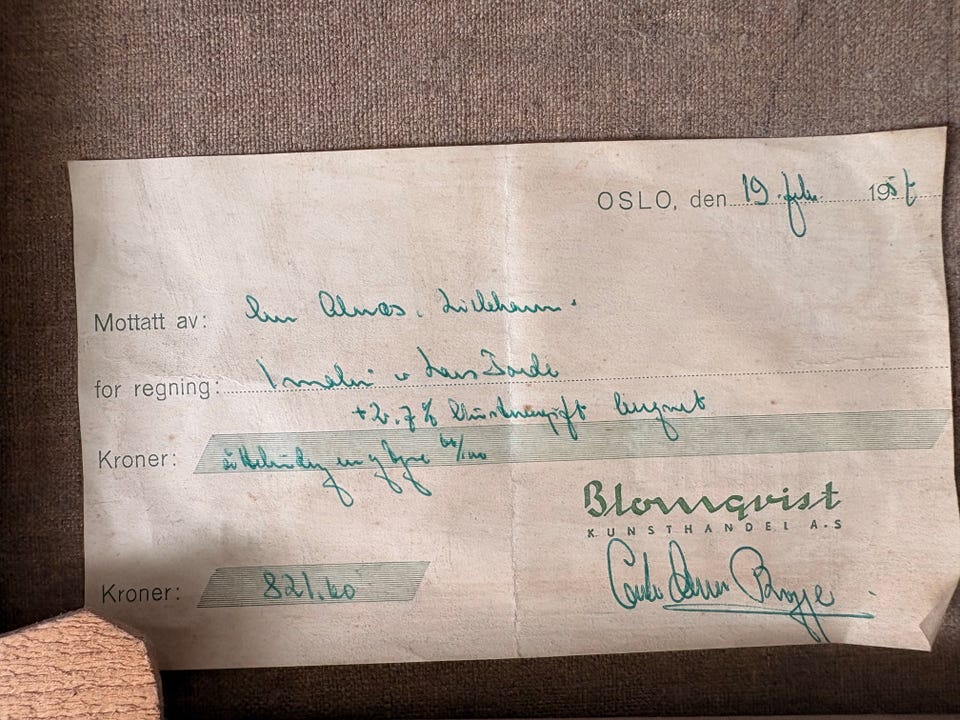 OSLO, den 19. febr. 195
Mottatt av: Almås. Lillehammer.
for regning: Maleri av Lars Jorde
+ 2.7% Kunstneravgift beregnet
Kroner: åttehundre en og tyve 60/100
Blomqvist
KUNSTHANDEL A-S
Kroner: 821.60